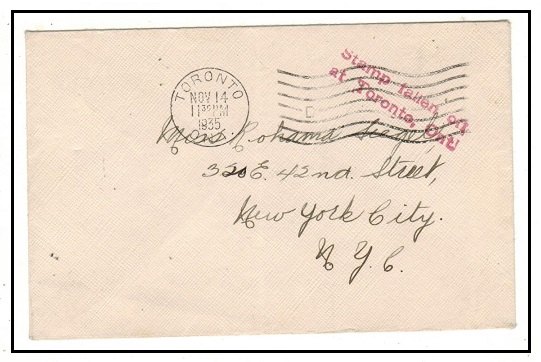 TORONTO
NOV 14
11 30 PM
1935
ONT.
Stamp fallen off
at Toronto, Ont.
Miss Rohama Siegel,
320 E. 42nd. Street,
New York City.
N. Y. C.